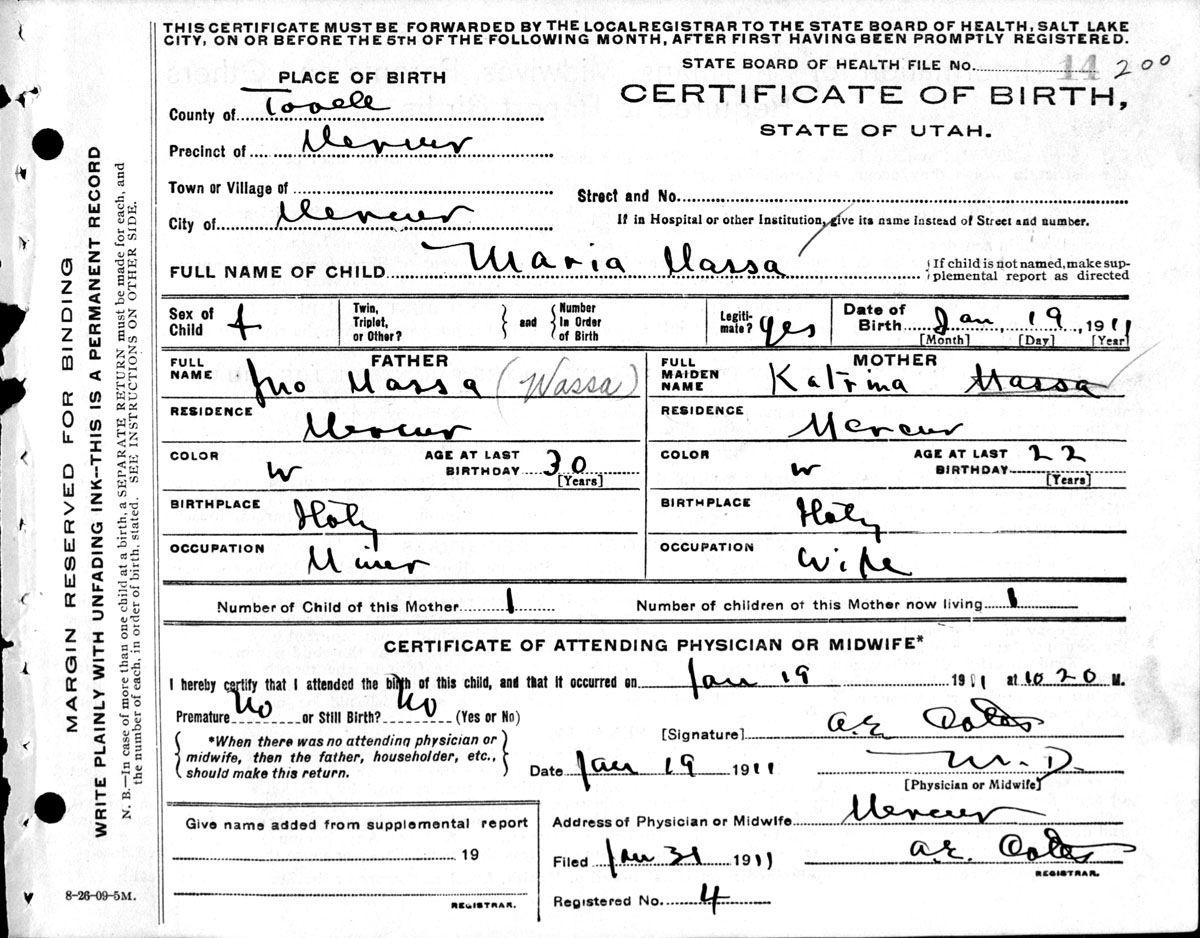 THIS CERTIFICATE MUST BE FORWARDED BY THE LOCAL REGISTRAR TO THE STATE BOARD OF HEALTH, SALT LAKE
CITY, ON OR BEFORE THE 5TH OF THE FOLLOWING MONTH, AFTER FIRST HAVING BEEN PROMPTLY REGISTERED.
STATE BOARD OF HEALTH FILE No. 14 200
PLACE OF BIRTH
CERTIFICATE OF BIRTH,
STATE OF UTAH.
County of Tooele
Precinct of Mercur
Town or Village of
Street and No.
City of Mercur
If in Hospital or other Institution, give its name instead of Street and number.
FULL NAME OF CHILD Maria Massa
{If child is not named, make sup-
plemental report as directed
Sex of Child f
Twin, Triplet, or Other? } and { Number In Order of Birth
Legiti-mate? yes
Date of Birth Jan 19, 1911
[Month] [Day] [Year]
FATHER
FULL NAME Jno Massa (Wassa)
MOTHER
FULL MAIDEN NAME Katrina Massa
RESIDENCE Mercur
RESIDENCE Mercur
COLOR W AGE AT LAST BIRTHDAY 30 [Years]
COLOR W AGE AT LAST BIRTHDAY 22 [Years]
BIRTHPLACE Italy
BIRTHPLACE Italy
OCCUPATION Miner
OCCUPATION Wife
Number of Child of this Mother 1
Number of children of this Mother now living 1
CERTIFICATE OF ATTENDING PHYSICIAN OR MIDWIFE*
I hereby certify that I attended the birth of this child, and that it occurred on Jan 19 1911 at 10 20 M.
Premature No or Still Birth? No (Yes or No)
[Signature] A.E. Oates
*When there was no attending physician or
midwife, then the father, householder, etc.,
should make this return.
Date Jan 19 1911 M.D.
[Physician or Midwife]
Give name added from supplemental report
19
REGISTRAR.
Address of Physician or Midwife Mercur
Filed Jan 31 1911 A.E. Oates
REGISTRAR.
Registered No. 4
MARGIN RESERVED FOR BINDING
WRITE PLAINLY WITH UNFADING INK--THIS IS A PERMANENT RECORD
N. B.—In case of more than one child at a birth, a SEPARATE RETURN must be made for each, and
the number of each, in order of birth, stated. SEE INSTRUCTIONS ON OTHER SIDE.
8-26-09-5M.